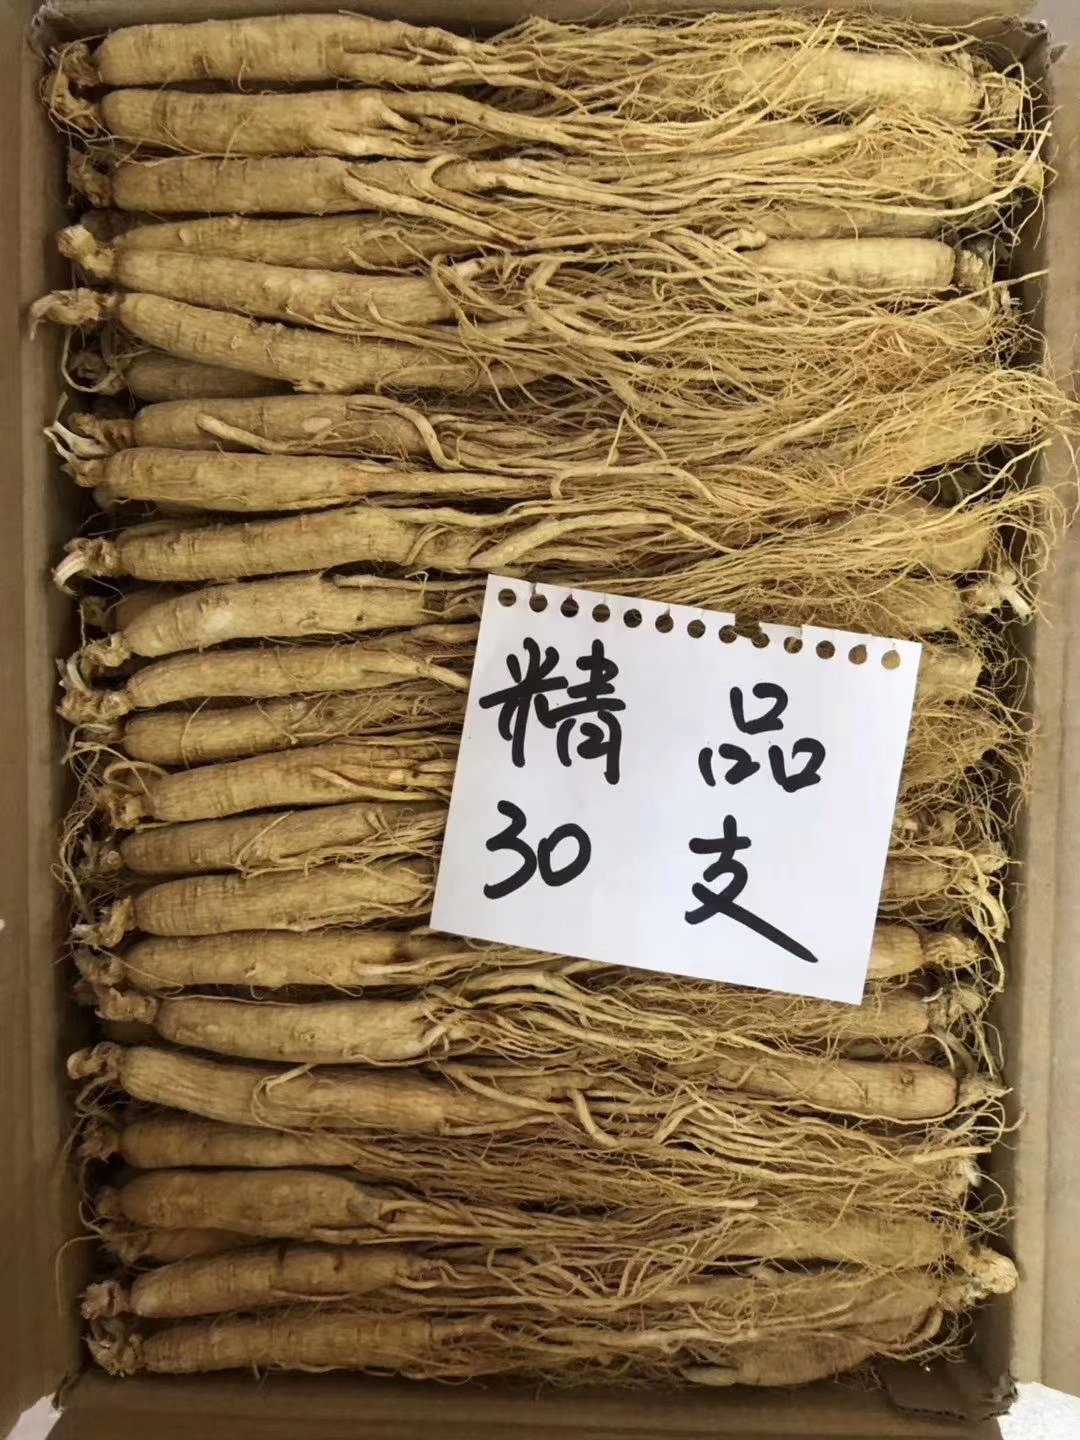 精品
30支